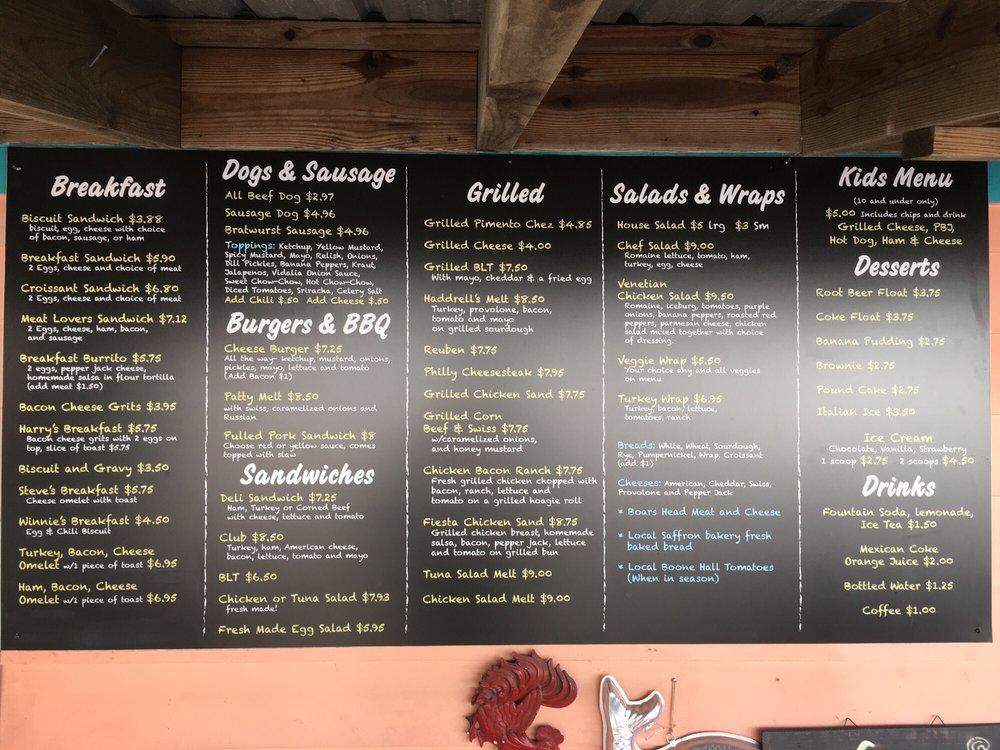 Breakfast
Biscuit Sandwich $3.88
biscuit, egg, cheese with choice
of bacon, sausage, or ham
Breakfast Sandwich $5.90
2 Eggs, cheese and choice of meat
Croissant Sandwich $6.80
2 Eggs, cheese and choice of meat
Meat Lovers Sandwich $7.12
2 Eggs, cheese, ham, bacon,
and sausage
Breakfast Burrito $5.75
2 eggs, pepper jack cheese,
homemade salsa in flour tortilla
(add meat $1.50)
Bacon Cheese Grits $3.95
Harry's Breakfast $5.75
Bacon cheese grits with 2 eggs on
top, slice of toast $5.75
Biscuit and Gravy $3.50
Steve's Breakfast $5.75
Cheese omelet with toast
Winnie's Breakfast $4.50
Egg & Chili Biscuit
Turkey, Bacon, Cheese
Omelet w/1 piece of toast $6.95
Ham, Bacon, Cheese
Omelet w/1 piece of toast $6.95
Dogs & Sausage
All Beef Dog $2.97
Sausage Dog $4.96
Bratwurst Sausage $4.96
Toppings: Ketchup, Yellow Mustard,
Spicy Mustard, Mayo, Relish, Onions,
Dill Pickles, Banana Peppers, Kraut,
Jalapenos, Vidalia Onion Sauce,
Sweet Chow-Chow, Hot Chow-Chow,
Diced Tomatoes, Sriracha, Celery Salt
Add Chili $.50 Add Cheese $.50
Burgers & BBQ
Cheese Burger $7.25
All the way- ketchup, mustard, onions,
pickles, mayo, lettuce and tomato
(Add Bacon $1)
Patty Melt $8.50
with swiss, caramelized onions and
Russian
Pulled Pork Sandwich $8
Choose red or yellow sauce, comes
topped with slaw
Sandwiches
Deli Sandwich $7.25
Ham, Turkey or Corned Beef
with cheese, lettuce and tomato
Club $8.50
Turkey, ham, American cheese,
bacon, lettuce, tomato and mayo
BLT $6.50
Chicken or Tuna Salad $7.93
fresh made!
Fresh Made Egg Salad $5.95
Grilled
Grilled Pimento Chez $4.85
Grilled Cheese $4.00
Grilled BLT $7.50
With mayo, cheddar & a fried egg
Haddrell's Melt $8.50
Turkey, provolone, bacon,
tomato and mayo
on grilled sourdough
Reuben $7.75
Philly Cheesesteak $7.95
Grilled Chicken Sand $7.75
Grilled Corn
Beef & Swiss $7.75
w/caramelized onions,
and honey mustard
Chicken Bacon Ranch $7.75
Fresh grilled chicken chopped with
bacon, ranch, lettuce and
tomato on a grilled hoagie roll
Fiesta Chicken Sand $8.75
Grilled chicken breast, homemade
salsa, bacon, pepper jack, lettuce
and tomato on grilled bun
Tuna Salad Melt $9.00
Chicken Salad Melt $9.00
Salads & Wraps
House Salad $5 lrg $3 Sm
Chef Salad $9.00
Romaine lettuce, tomato, ham,
turkey, egg, cheese
Venetian
Chicken Salad $9.50
Romaine, iceburg, tomatoes, purple
onions, banana peppers, roasted red
peppers, parmesan cheese, chicken
salad mixed together with choice
of dressing.
Veggie Wrap $5.50
Your choice any and all veggies
on menu
Turkey Wrap $6.95
Turkey, bacon, lettuce,
tomatoes, ranch
Breads: White, Wheat, Sourdough,
Rye, Pumpernickel, Wrap, Croissant
(add $1)
Cheeses: American, Cheddar, Swiss,
Provolone and Pepper Jack
* Boars Head Meat and Cheese
* Local Saffron bakery fresh
baked bread
* Local Boone Hall Tomatoes
(When in season)
Kids Menu
(10 and under only)
$5.00 Includes chips and drink
Grilled Cheese, PBJ,
Hot Dog, Ham & Cheese
Desserts
Root Beer Float $3.75
Coke Float $3.75
Banana Pudding $2.75
Brownie $2.75
Pound Cake $2.75
Italian Ice $3.50
Ice Cream
Chocolate, Vanilla, Strawberry
1 scoop $2.75 2 scoops $4.50
Drinks
Fountain Soda, lemonade,
Ice Tea $1.50
Mexican Coke
Orange Juice $2.00
Bottled Water $1.25
Coffee $1.00